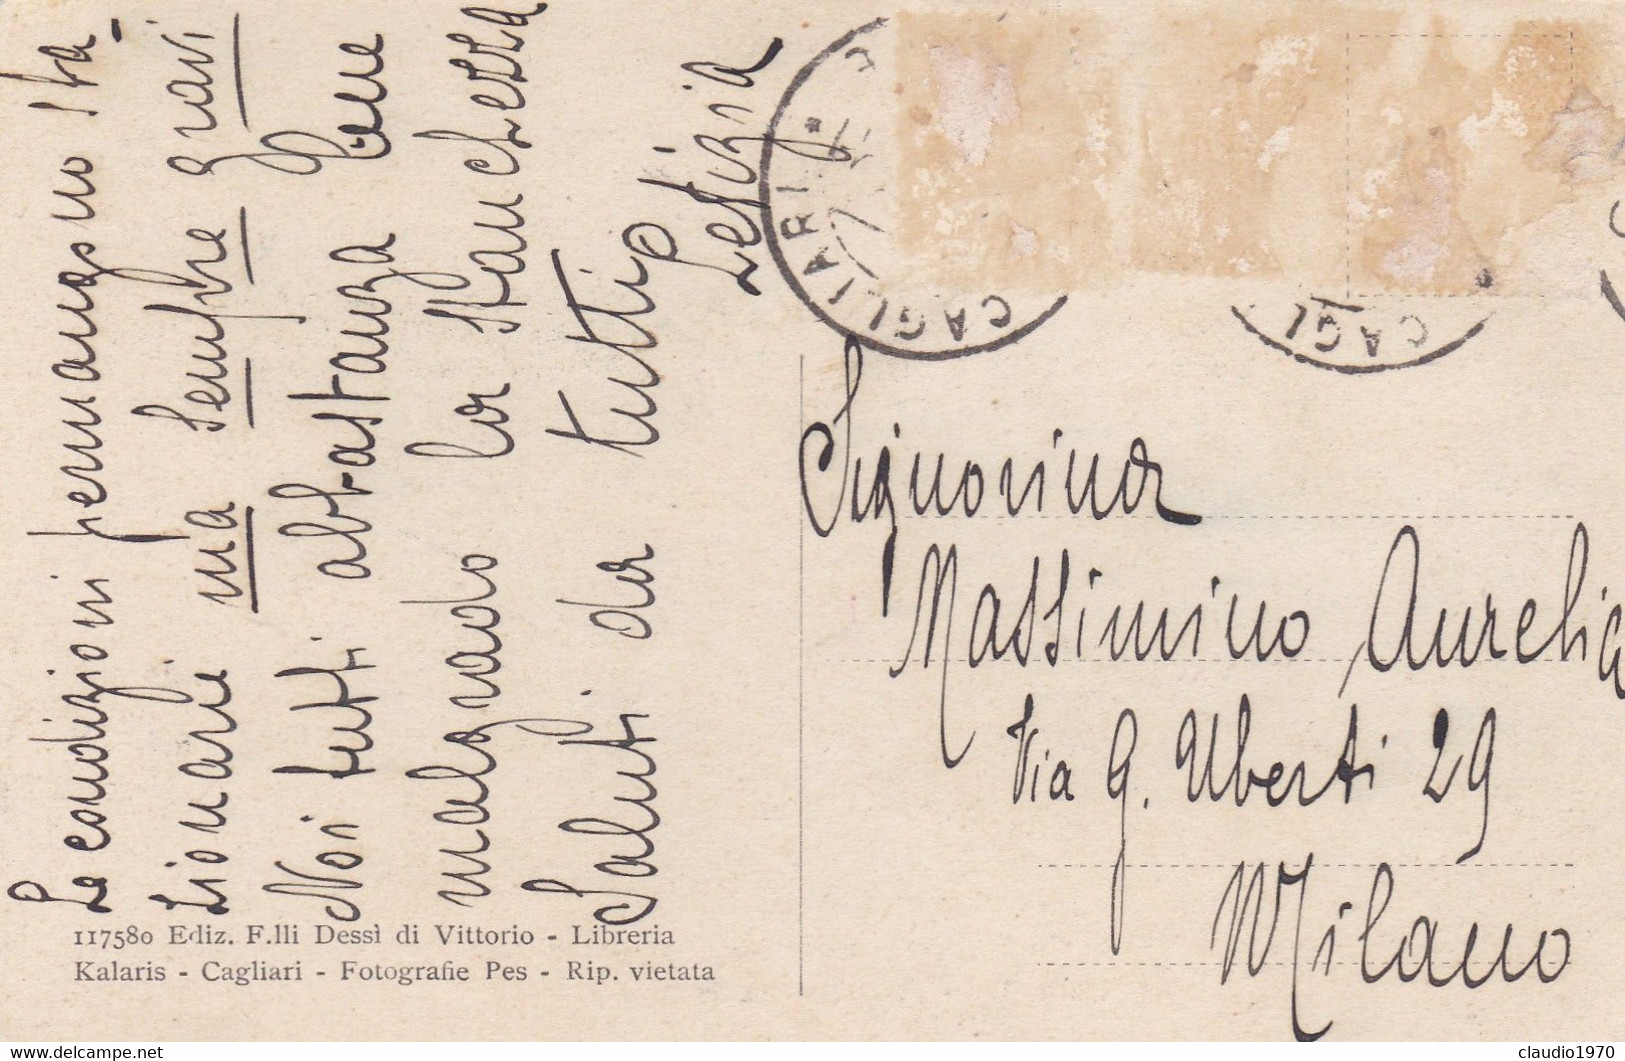 Le condizioni permangono sta-
zionarie ma sempre gravi
Noi tutti abbastanza bene
malgrado la stanchezza
Saluti da tutti
Letizia
CAGLIARI
CAGL
Signorina
Massimino Aurelia
Via G. Uberti 29
Milano
117580 Ediz. F.lli Dessì di Vittorio - Libreria
Kalaris - Cagliari - Fotografie Pes - Rip. vietata
delcampe.net
claudio1970